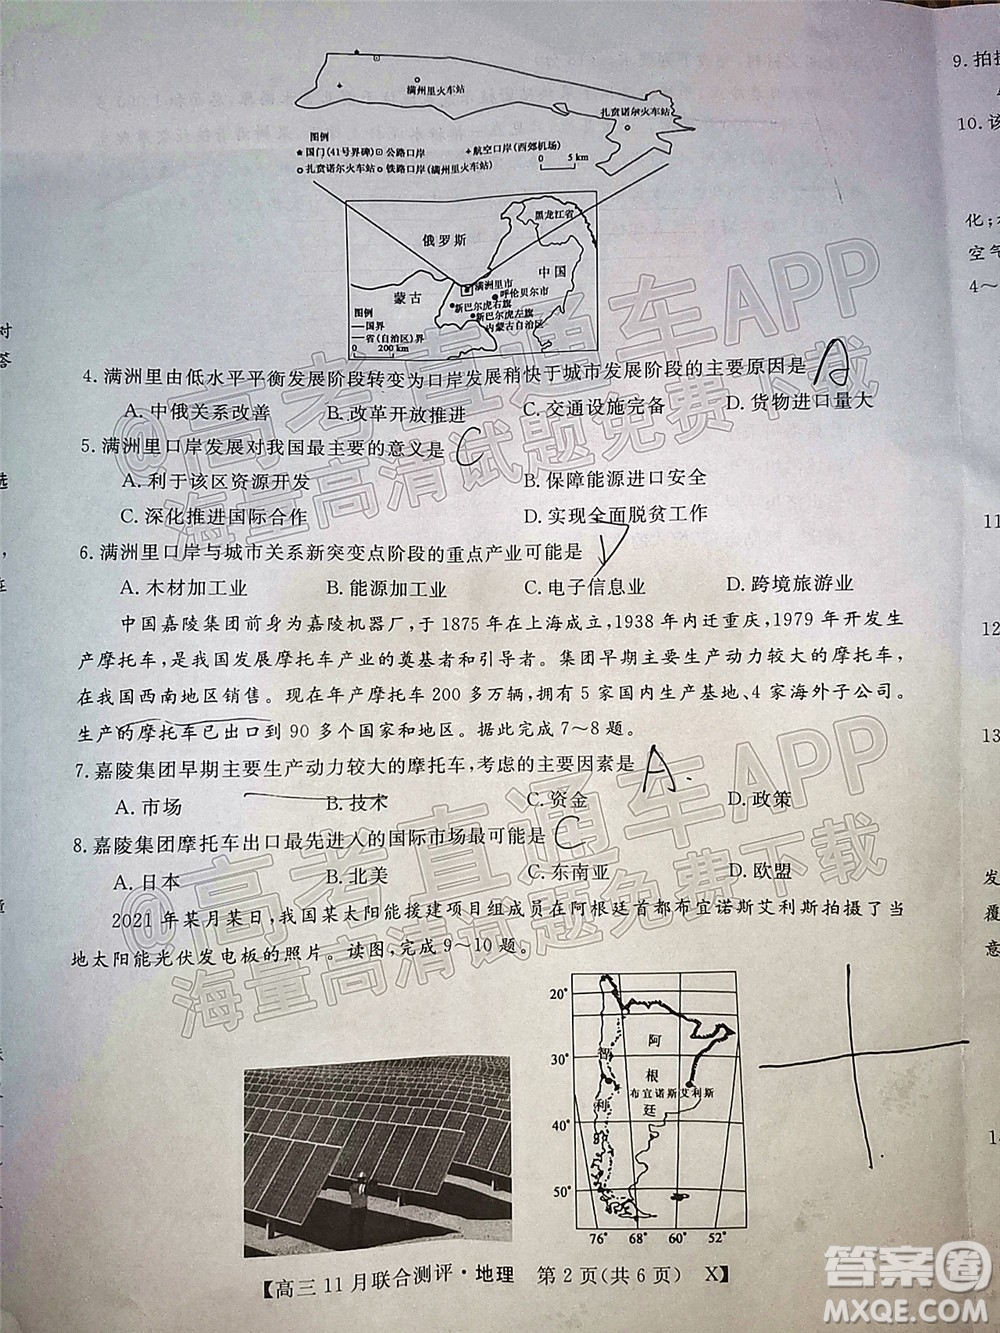 满洲里火车站
扎赉诺尔火车站
图例
国门(41号界碑) 公路口岸 航空口岸(西郊机场)
扎赉诺尔火车站 铁路口岸(满洲里火车站)
0 5 km
俄罗斯
黑龙江省
中国
蒙古
满洲里市
呼伦贝尔市
新巴尔虎右旗
新巴尔虎左旗
内蒙古自治区
图例
国界
省(自治区)界
0 200 km
4. 满洲里由低水平平衡发展阶段转变为口岸发展稍快于城市发展阶段的主要原因是 A
A. 中俄关系改善 B. 改革开放推进 C. 交通设施完备 D. 货物进口量大
5. 满洲里口岸发展对我国最主要的意义是 C
A. 利于该区资源开发 B. 保障能源进口安全
C. 深化推进国际合作 D. 实现全面脱贫工作
6. 满洲里口岸与城市关系新突变点阶段的重点产业可能是
A. 木材加工业 B. 能源加工业 C. 电子信息业 D. 跨境旅游业
中国嘉陵集团前身为嘉陵机器厂,于 1875 年在上海成立,1938 年内迁重庆,1979 年开发生
产摩托车,是我国发展摩托车行业的奠基者和引导者。集团早期主要生产动力较大的摩托车,
在我国西南地区销售。现在年产摩托车 200 多万辆,拥有 5 家国内生产基地、4 家海外子公司。
生产的摩托车已出口到 90 多个国家和地区。据此完成 7～8 题。
7. 嘉陵集团早期主要生产动力较大的摩托车,考虑的主要因素是 A.
A. 市场 B. 技术 C. 资金 D. 政策
8. 嘉陵集团摩托车出口最先进入的国际市场最可能是 C
A. 日本 B. 北美 C. 东南亚 D. 欧盟
2021 年某月某日,我国某太阳能援建项目组成员在阿根廷首都布宜诺斯艾利斯拍摄了当
地太阳能光伏发电板的照片。读图,完成 9～10 题。
20°
30°
40°
50°
76° 68° 60° 52°
智利
阿根廷
布宜诺斯艾利斯
【高三 11 月联合测评·地理 第 2 页(共 6 页) X】
9. 拍
10. 该
化;
空气
4～
11
12
13
14
发
覆
意
对
答
选
@高考直通车APP
海量高清试题免费下载
@高考直通车APP
海量高清试题免费下载
答案圈
MXQE.COM